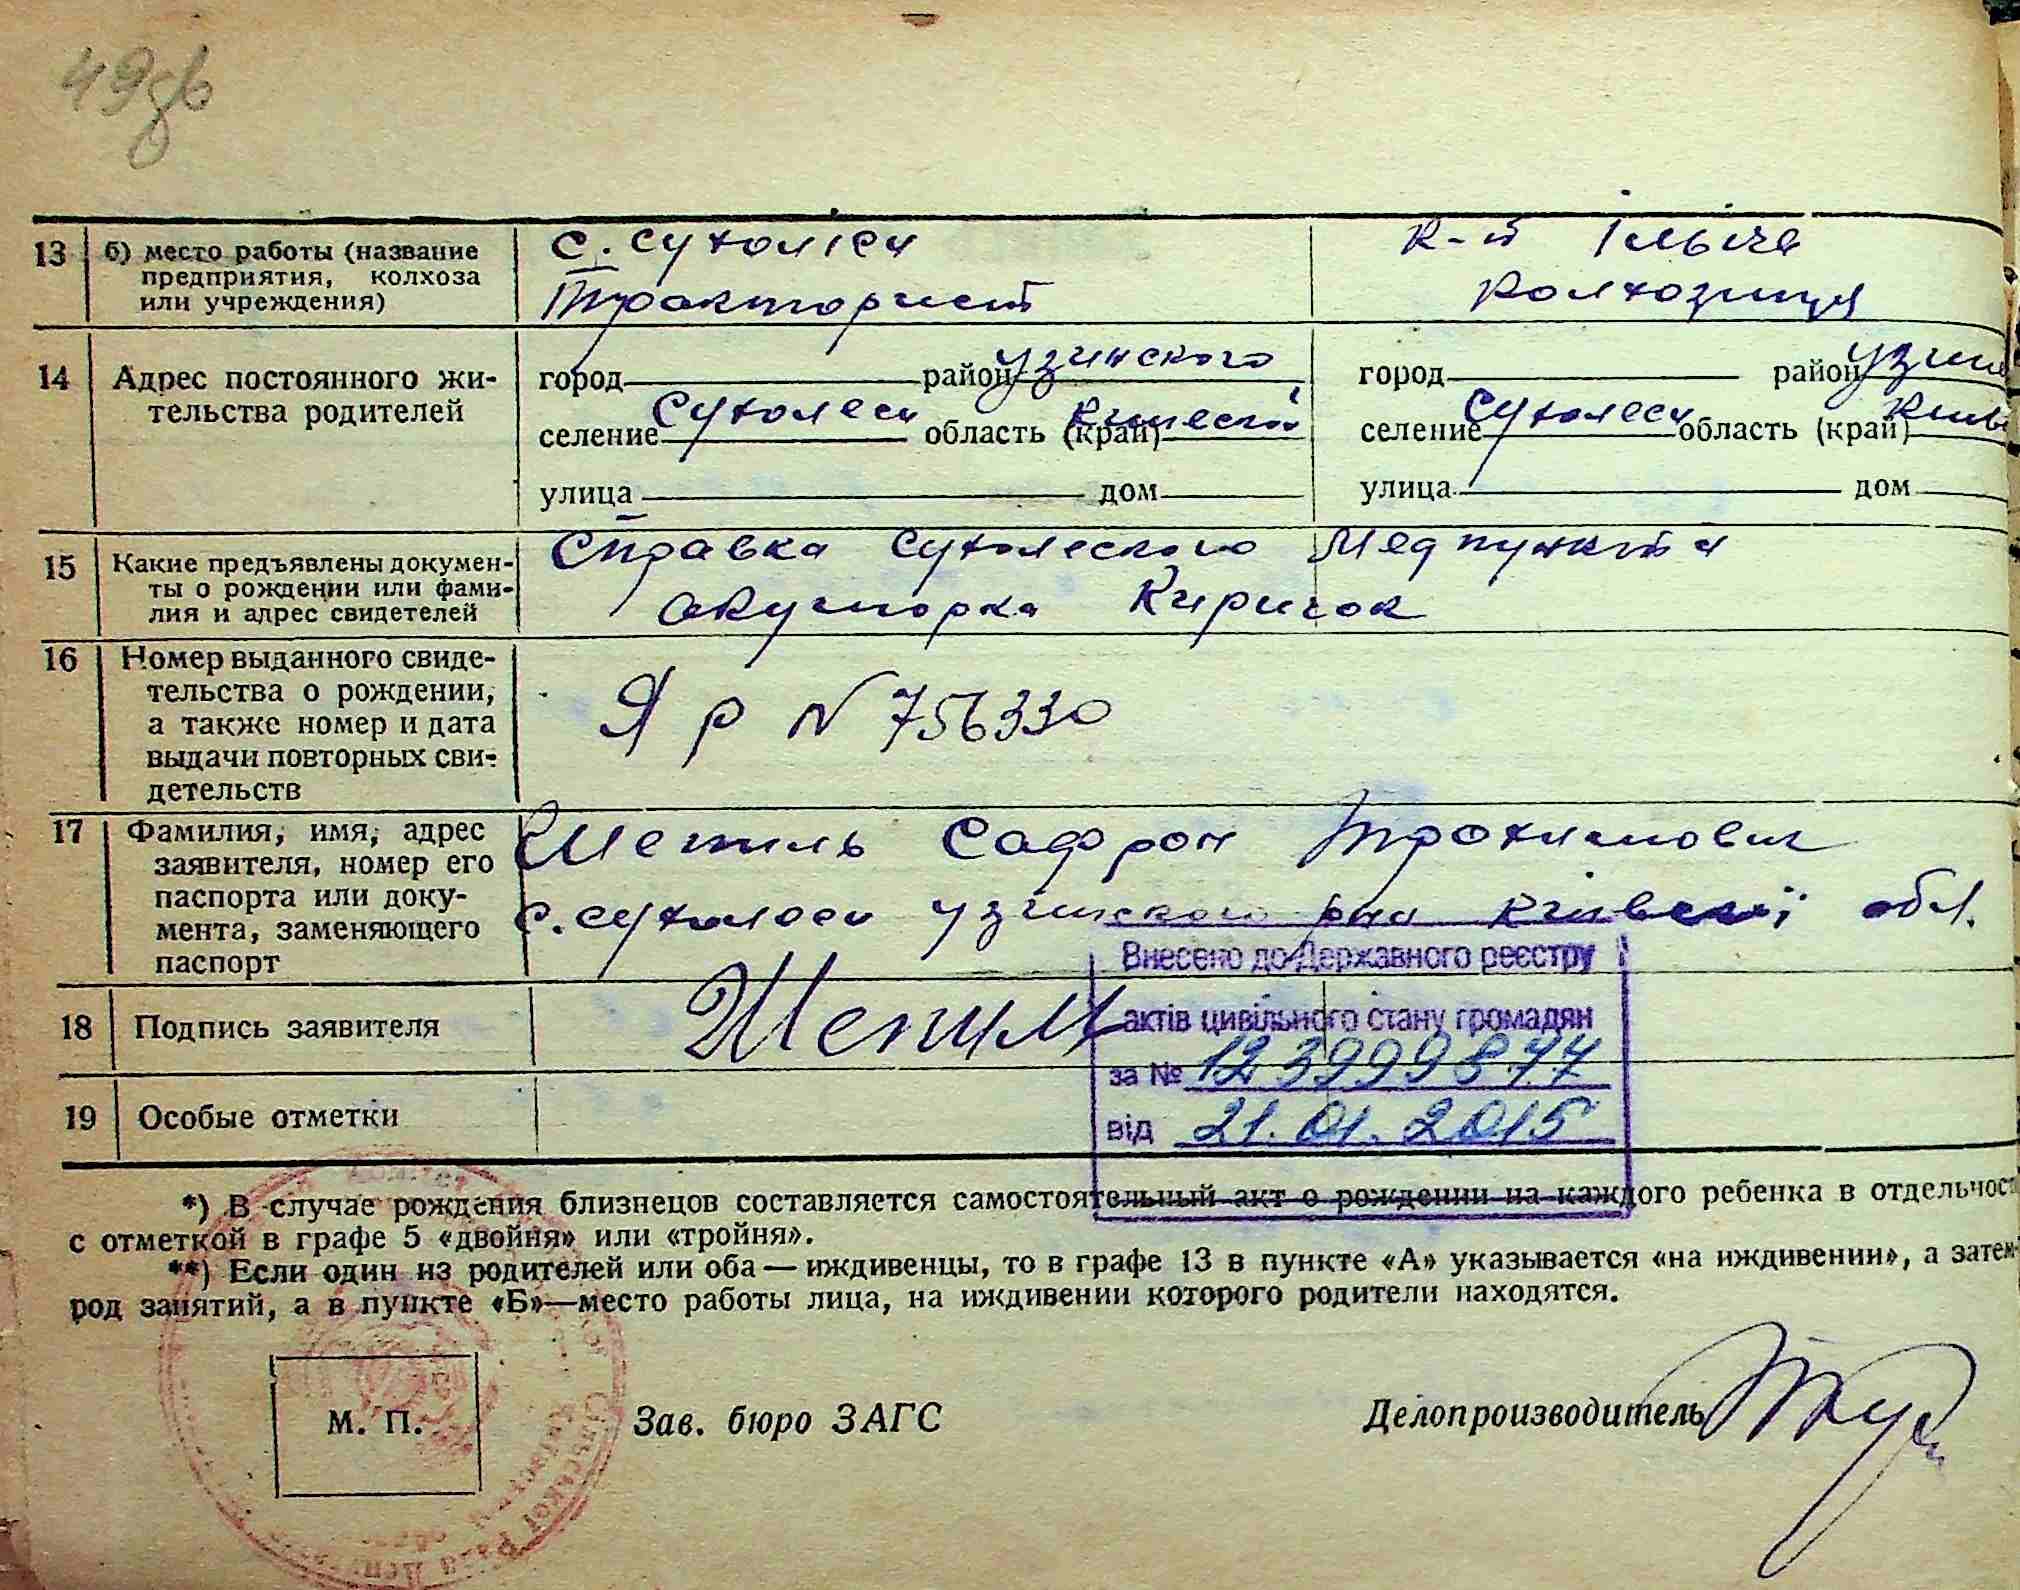 49зв
13 б) место работы (название предприятия, колхоза или учреждения)
с. Сухоліси
Тракторист
к-п Ілыіча
колхозниця
14 Адрес постоянного жительства родителей
город район Узинского
селение Сухолеси область (край) Киевской
улица дом
город район Узин
селение Сухолеси область (край) Киев
улица дом
15 Какие предъявлены документы о рождении или фамилия и адрес свидетелей
Справка Сухолеского Медпункта
акушорка Киричок
16 Номер выданного свидетельства о рождении, а также номер и дата выдачи повторных свидетельств
Я р N 756330
17 Фамилия, имя, адрес заявителя, номер его паспорта или документа, заменяющего паспорт
Шепиль Сафрон Трохимович
с. Сухолеси Узинского р-на Київської обл.
18 Подпись заявителя
Шепиль
Внесено до Державного реєстру
актів цивільного стану громадян
за № 123999877
від 21.01.2015
19 Особые отметки
*) В случае рождения близнецов составляется самостоятельный акт о рождении на каждого ребенка в отдельност
с отметкой в графе 5 «двойня» или «тройня».
**) Если один из родителей или оба — иждивенцы, то в графе 13 в пункте «А» указывается «на иждивении», а затем
род занятий, а в пункте «Б»—место работы лица, на иждивении которого родители находятся.
М. П.
Зав. бюро ЗАГС
Делопроизводитель